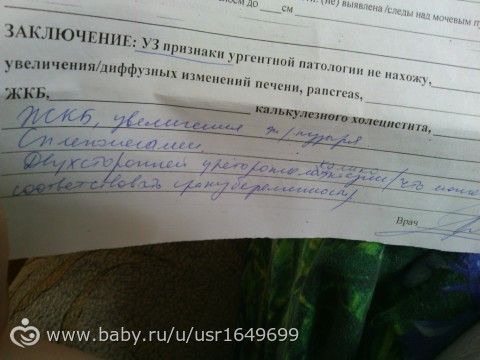 до см
выявлена /следы над мочевым
ЗАКЛЮЧЕНИЕ: УЗ признаки ургентной патологии не нахожу,
увеличения/диффузных изменений печени, pancreas,
ЖКБ, калькулезного холецистита,
ЖКБ, увеличения ж/пузыря
Спленомегалии
Двухсторонней /что може
соответствовать сроку беременности/
Врач
www.baby.ru/u/usr1649699